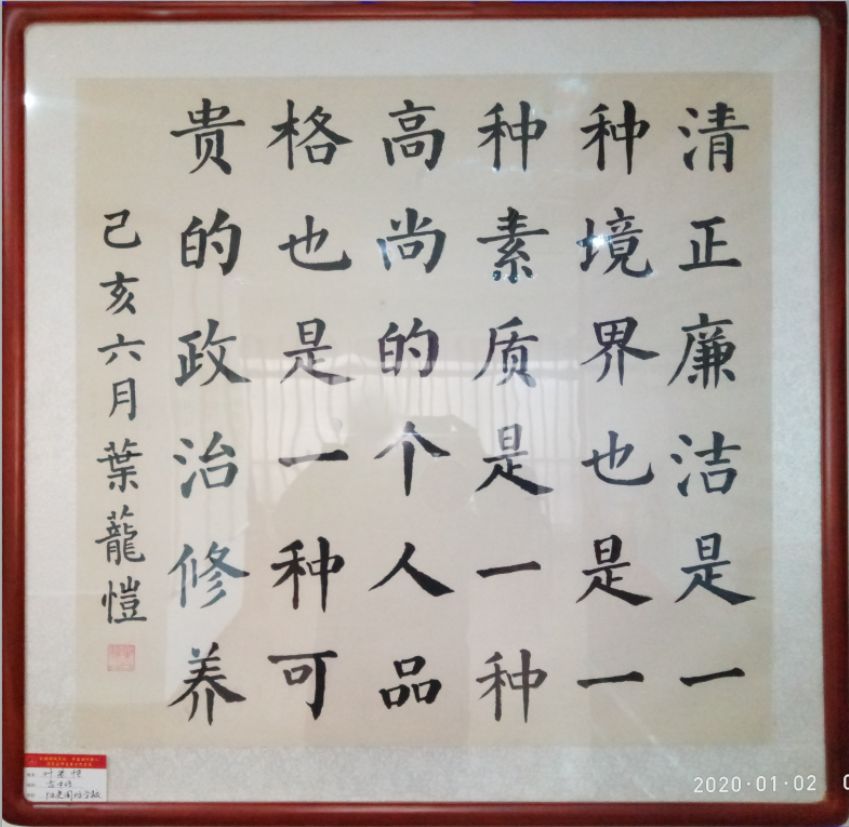 清正廉洁是一
种境界也是一
种素质是一种
高尚的个人品
格也是一种可
贵的政治修养
己亥六月葉蘢愷
2020·01·02